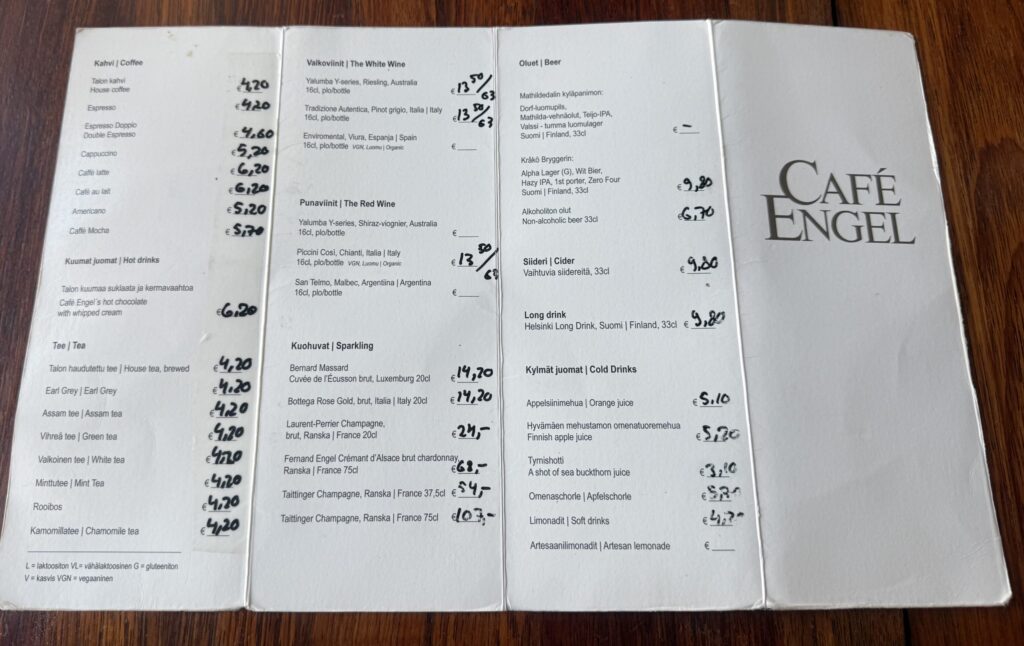 Kahvi | Coffee
Talon kahvi
House coffee € 4,20
Espresso € 4,20
Espresso Doppio
Double Espresso € 4,60
Cappuccino € 5,20
Caffé latte € 6,20
Café au lait € 6,20
Americano € 5,20
Caffé Mocha € 5,70
Kuumat juomat | Hot drinks
Talon kuumaa suklaata ja kermavaahtoa
Café Engel's hot chocolate
with whipped cream € 6,20
Tee | Tea
Talon haudutettu tee | House tea, brewed € 4,20
Earl Grey | Earl Grey € 4,20
Assam tee | Assam tea € 4,20
Vihreä tee | Green tea € 4,20
Valkoinen tee | White tea € 4,20
Minttutee | Mint Tea € 4,20
Rooibos € 4,20
Kamomillatee | Chamomile tea € 4,20
L = laktoositon VL= vähälaktoosinen G = gluteeniton
V = kasvis VGN = vegaaninen
Valkoviinit | The White Wine
Yalumba Y-series, Riesling, Australia
16cl, plo/bottle € 13 50/63
Tradizione Autentica, Pinot grigio, Italia | Italy
16cl, plo/bottle € 13 50/63
Enviromental, Viura, Espanja | Spain
16cl, plo/bottle VGN, Luomu | Organic €
Punaviinit | The Red Wine
Yalumba Y-series, Shiraz-viognier, Australia
16cl, plo/bottle €
Piccini Così, Chianti, Italia | Italy
16cl, plo/bottle VGN, Luomu | Organic € 13 50/63
San Telmo, Malbec, Argentiina | Argentina
16cl, plo/bottle €
Kuohuvat | Sparkling
Bernard Massard
Cuvée de l'Écusson brut, Luxemburg 20cl € 14,20
Bottega Rose Gold, brut, Italia | Italy 20cl € 14,20
Laurent-Perrier Champagne,
brut, Ranska | France 20cl € 24,-
Fernand Engel Crémant d'Alsace brut chardonnay,
Ranska | France 75cl € 68,-
Taittinger Champagne, Ranska | France 37,5cl € 54,-
Taittinger Champagne, Ranska | France 75cl € 107,-
Oluet | Beer
Mathildedalin kyläpanimon:
Dorf-luomupils,
Mathilda-vehnäolut, Teijo-IPA,
Valssi - tumma luomulager
Suomi | Finland, 33cl € –
Kråkö Bryggerin:
Alpha Lager (G), Wit Bier,
Hazy IPA, 1st porter, Zero Four
Suomi | Finland, 33cl € 9,80
Alkoholiton olut
Non-alcoholic beer 33cl € 6,70
Siideri | Cider
Vaihtuvia siidereitä, 33cl € 9,80
Long drink
Helsinki Long Drink, Suomi | Finland, 33cl € 9,80
Kylmät juomat | Cold Drinks
Appelsiinimehua | Orange juice € 5,10
Hyvämäen mehustamon omenatuoremehua
Finnish apple juice € 5,20
Tyrnishotti
A shot of sea buckthorn juice € 3,10
Omenaschorle | Apfelschorle €
Limonadit | Soft drinks €
Artesaanilimonadit | Artesan lemonade €
CAFÉ
ENGEL